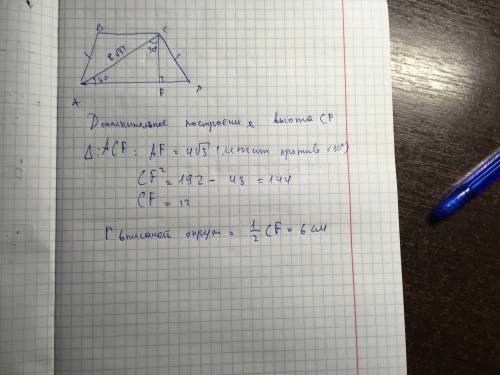 B
C
8√3
30
60
A
F
P
Дополнительное построение высота CF
Δ: ACF: AF = 4√3 (лежит против <30°)
CF² = 192 - 48 = 144
CF = 12
r вписаной окруж = 1/2 CF = 6 см